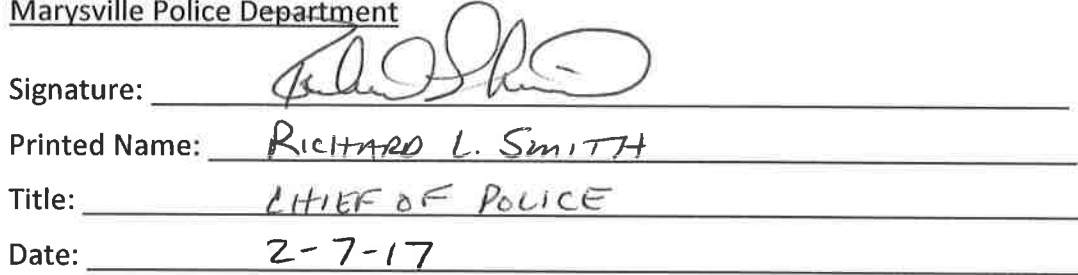 Marysville Police Department
Signature:
Printed Name: RICHARD L. SMITH
Title: CHIEF OF POLICE
Date: 2-7-17